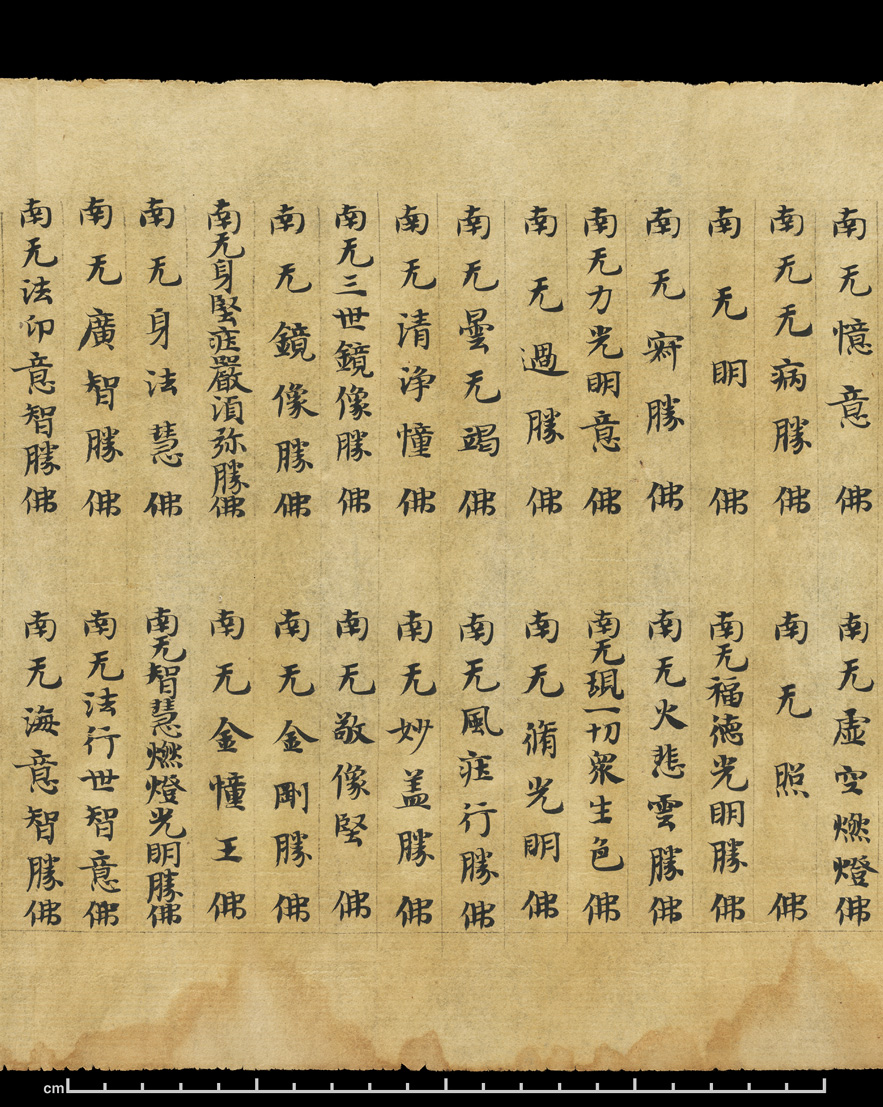 南无憶意佛 南无虛空燃燈佛
南无无病勝佛 南无照佛
南无明佛 南无福德光明勝佛
南无寂勝佛 南无火悲雲勝佛
南无力光明意佛 南无現一切衆生色佛
南无過勝佛 南无脩光明佛
南无曇无竭佛 南无風疾行勝佛
南无清淨幢佛 南无妙盖勝佛
南无三世鏡像勝佛 南无敬像堅佛
南无鏡像勝佛 南无金剛勝佛
南无身堅莊嚴須弥勝佛 南无金幢王佛
南无身法慧佛 南无智慧燃燈光明勝佛
南无廣智勝佛 南无法行世智意佛
南无法印意智勝佛 南无海意智勝佛
cm